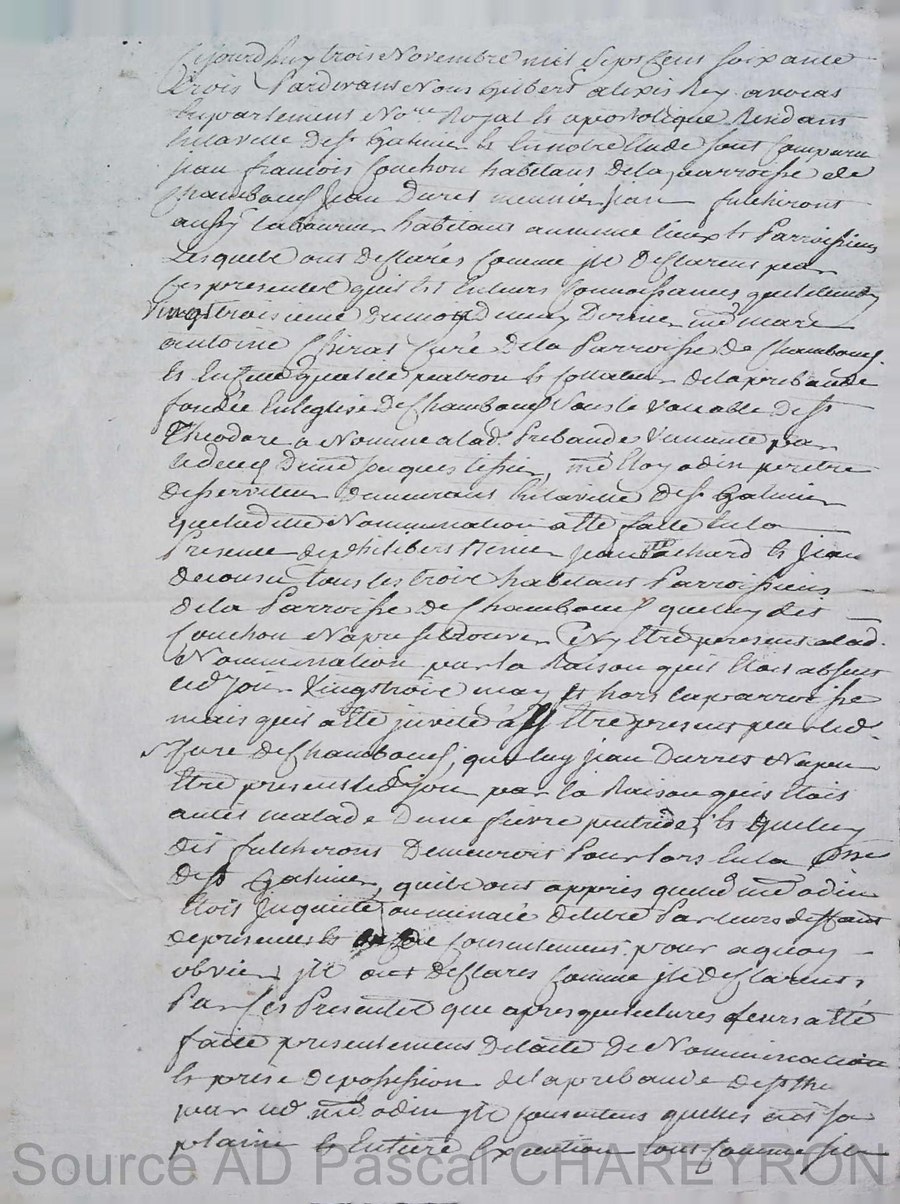 Cejourdhuy trois Novembre mil Sept Cens soixante
trois Pardevant Nous Gilbert alexis Rey avocat
Enparlement No.re Royal Et apostolique Residant
Enlaville de St Galmier Et Ennotre Etude sont Comparu
jean francois Couchon habitans dela parroisse de
Chambœuf jean Durret meunier jean fulchiront
aussy laboureur habitans aumeme lieux Et Parroissiens
Lesquels ont declarés Comme jls declarent par
Ces presentes quil Est Enleurs Connoissances queledit
Vingttroisieme dumois demay dernier md mare
antoine Chirat Curé dela Parroisse de Chambœuf
Et Enlad qualité patron Et Collateur dela prebande
fondée Enleglise de Chambœuf Sous le Vocable de St
Theodore a Nommé alad. Prebande Vacante par
ledeces dum jacques tissier, md Eloy odin pretre
desserviteur demeurant Enlaville de St Galmier
queladitte Nomination a Eté faite Enla
Presence de philibert jean Pichard Et jean
decousu tous les trois habitans Parroissiens
dela Parroisse de Chambœuf que luy dit
Couchon Napu se trouver Ny Etre present alad.
Nomination par la Raison quil Etoit absent
led jour Vingttrois may Et hors laparroisse
mais quil a Eté jnvité a y Etre present par led.
Sr Curé de Chambœuf, que luy jean Durret Napeu
Etre present led jour par la Raison quil Etoit
malade dune fievre putride, Et que luy
dit fulchiront demeuroit Pour lors Enla
de St Galmier, quils ont appris queled md odin
Etoit jnquieté oumenacé deletre Par leurs deffaut
de presence Et de Consentement pour aquoy
obvier jls ont declarés Comme jls declarent
Par Ces Presentes que apres quelecture leurs a Eté
faite presentement delacte de Nomination
Et prise de possession dela prebande de St the
par led md odin jls consentent quelles ait sa
plaine Et Entiere Execution tout comme sils
Source AD Pascal CHAREYRON